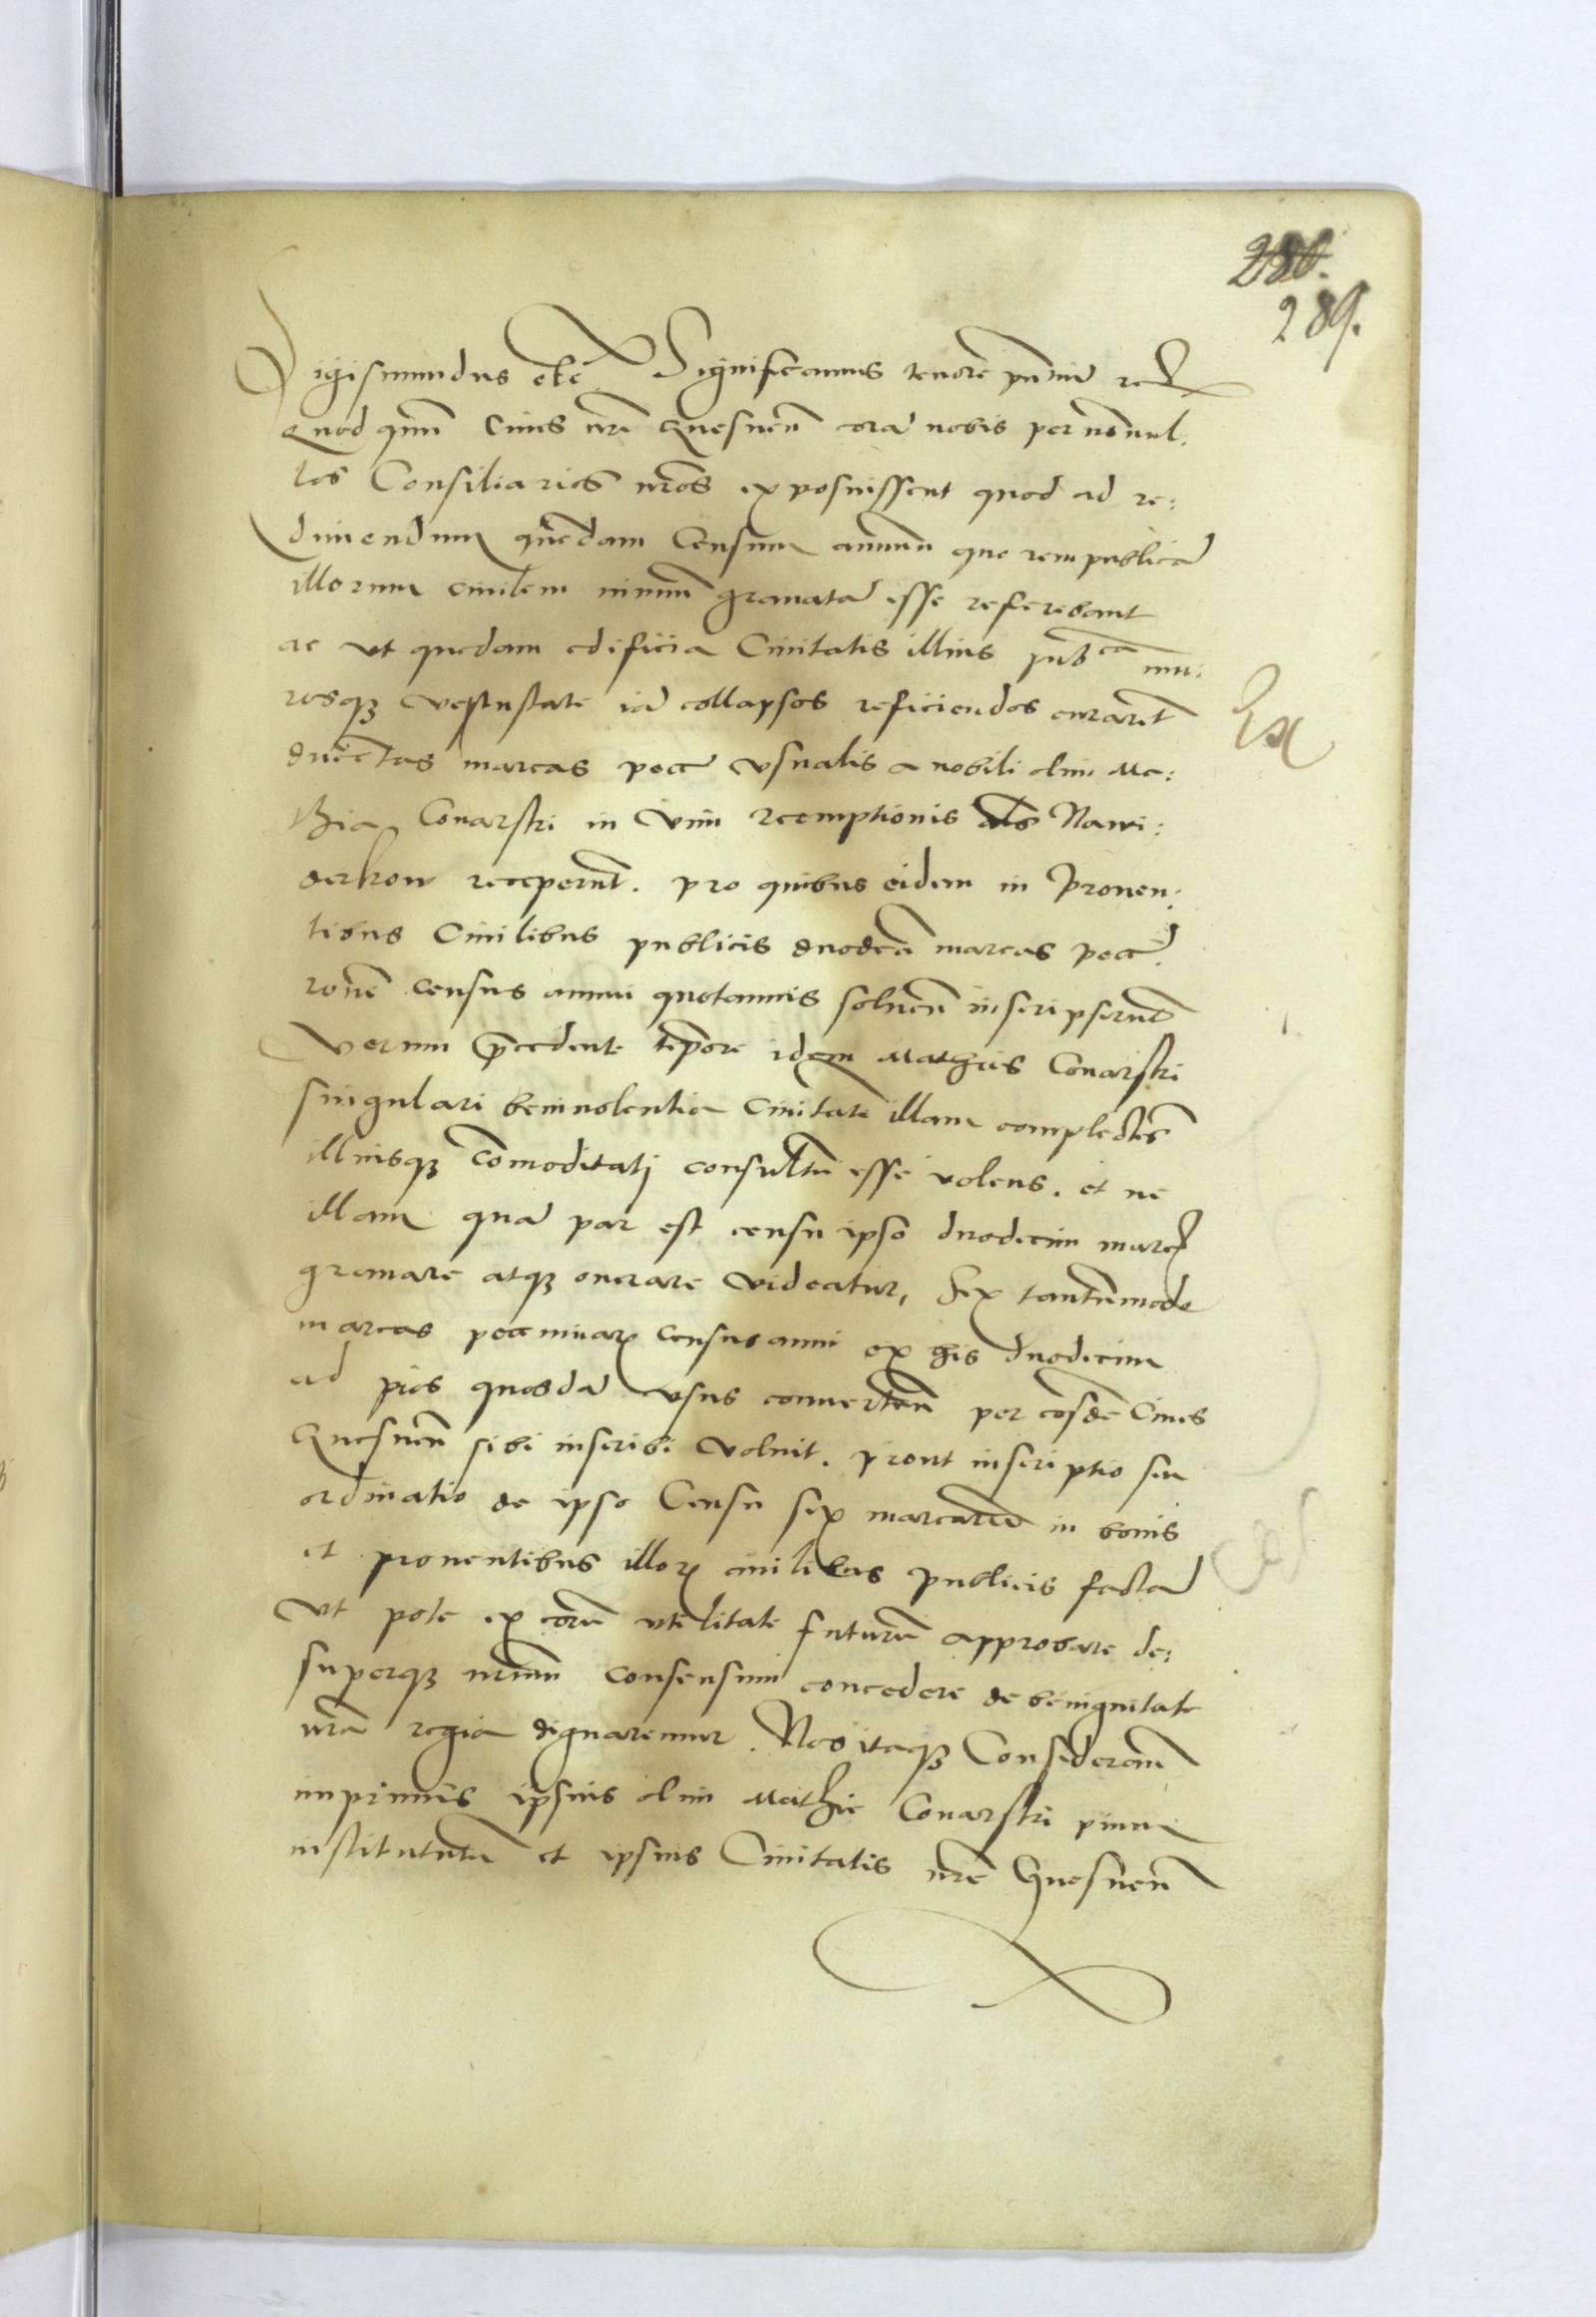 280.
289.
Sigismundus etc Significamus tenore pntiu rc
Quod qum Ciues nri Gnesnen cora nobis per nonnul:
los Consiliarios nros exposuissent quod ad re:
dimendum quendam Censum annuu quo rempublica
illorum ciuilem nimiu grauata esse referebant
ac ut quedam edificia Ciuitatis illius pub ca mu:
rosq vetustate ia collapsos reficiendos curaret
ducetas marcas pecc usualis a nobili olim Ma:
thia Conarski in vim reemptionis als Nawi:
derkow receperunt. pro quibus eidem in Prouen:
tibus Ciuilibus publicis duodeci marcas pecc
rone census annui quotannis soluen inscripserunt
Verum pcedente tepore idem Mathias Conarski
singulari beniuolentia Ciuitate illam complectes
illiusq comoditatj consultu esse volens. et ne
illam qua par est censu ipso duodecim marc
grauare atq onerare videatur, sex tantummodo
marcas pecuniar census anni ex his duodecim
ad pios quosda usus conuerten per eosde Ciues
Gnesnen sibi inscribi voluit. prout inscriptio seu
ordinatio de ipso Censu sex marcaru in bonis
et prouentibus illor ciuilibus publicis facta
Ut pote ex eoru utilitate futura approbare de:
superq nrum consensum concedere de benignitate
nra regia dignaremur. Nos itaq Consideran
inprimis ipsius olim Mathie Conarski pium
institututu et ipsius Ciuitatis nre Gnesnen
Ex